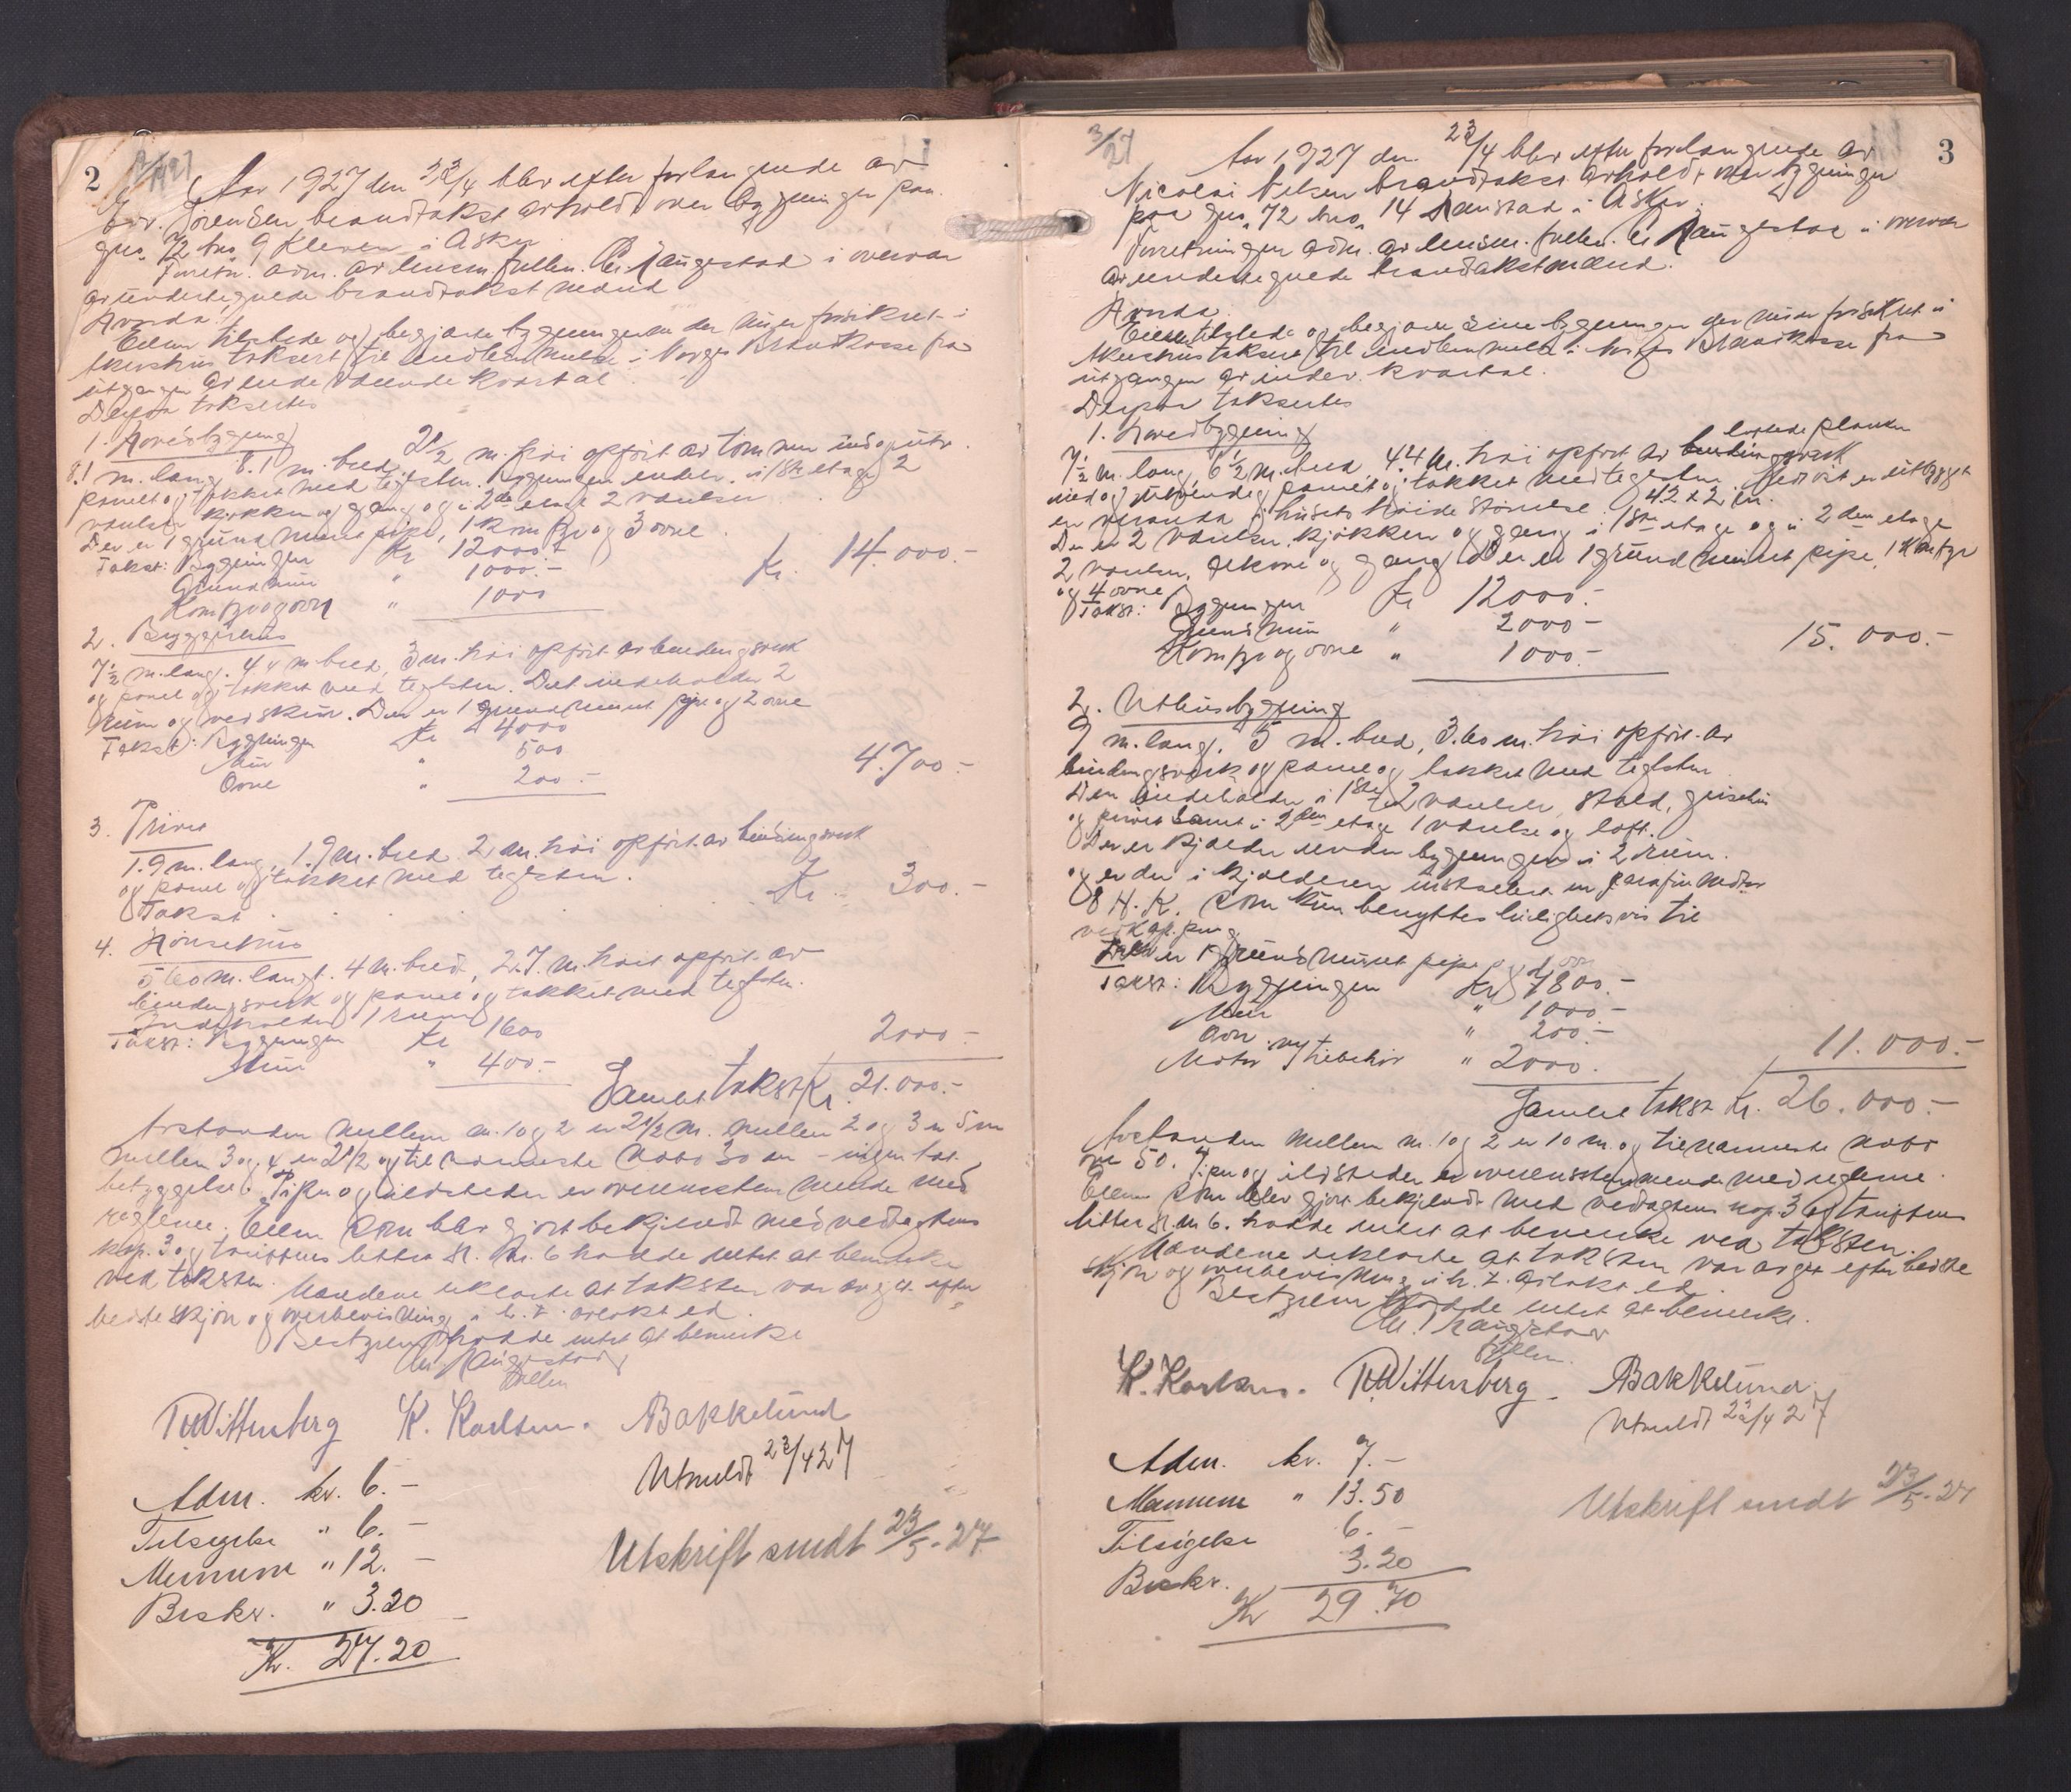 2
Aar 1927 den 23/4 blev efter forlangende av
Sørensen brandtakst avholdt over bygninger paa
gno. 72 bno. 9 Kleven i Asker
Forretn. adm. av lensm. fullm. Chr. Haugestad i overvær
av undertegnede brandtakstmænd
Hvorda:
Eieren tilstede og begjærte bygningerne der nu er forsikret i
Akershus taksert til indlemmelse i Norges Brandkasse fra
utgangen av indeværende kvartal.
Derpaa takseertes
1. Hovedbygning
8.1 m. lang, 8.1 m. bred, 2 1/2 m. høi opført av tømmer ind og utv.
panelt og takket med teglsten. Bygningen indeh. i 1ste etage 2
værelser kjøkken og gang og i 2den etage 2 værelser
Der er 1 grundmuret pipe, 1 komfyr og 3 ovne.
Takst: Bygningen Kr 12000.-
Grundmur " 1000.-
Komfyr og ovn " 1000 Kr. 14.000.-
2. Bryggerhus
7 1/2 m. lang. 4.4 m. bred, 3 m. høi opført av bindingsverk
og panel og takket med teglsten. Det indeholder 2
rum og vedskur. Der er 1 grundmuret pipe og 2 ovne
Takst: Bygningen Kr 4000
Mur " 500
Ovne " 200.- 4.700.-
3. Privet
1.9 m. lang, 1.9 m. bred 2 m. høi opført av bindingsverk
og panel og takket med teglsten.
Takst . . . . . Kr. 300.-
4. Hønsehus
5.60 m. langt. 4 m. bred, 2.7. m. høit opført av
bindingsverk og panel og takket med teglsten.
Indeholder 1 rum
Takst: Bygningen Kr 1600
Mur " 400.- 2000.-
Samlet takst Kr. 21.000.-
Avstanden mellem nr. 1 og 2 er 2 1/2 m. mellem 2 og 3 er 5 m
mellem 3 og 4 er 2 1/2 og til nærmeste nabo 30 m - ingen tæt
bebyggelse. Piper og ildsteder er overensstemmende med
reglene. Eieren som blev gjort bekjendt med vedtægtens
kap. 3 og tariffens littra St. nr. 6 hadde intet at bemerke
ved taksten. Mændene erklærte at taksten var avgit efter
bedste skjøn og overbevisning i h. t. avlakt ed.
Bestyreren hadde intet at bemerke
Chr. Haugestad
fullm
R. Wittersberg K. Karlsen. A Bakkelund
Utmeldt 23/4 27
Adm. kr. 6.-
Tilsigelse " 6.-
Mænnene " 12.-
Beskr. " 3.20
Kr. 27.20
Utskrift sendt 23/5-27
3/27
3
Aar 1927 den 23/4 blev efter forlangende av
Nicolai Nilsen brandtakst avholdt over bygninger
paa gno. 72 bno. 14 Haustad i Asker.
Forretningen adm. av lensm. fullm. Chr. Haugestad i overvær
av undertegnede brandtakstmænd.
Hvorda.
Eieren tilstede og begjærte sine bygninger der nu er forsikret i
Akershus taksert til indlemmelse i Norges Brandkasse fra
utgangen av indev. kvartal.
Derpaa takseertes
1. Hovedbygning
7 1/2 m. lang, 6 1/2 m. bred, 4.4 m. høi opført av bindingsverk planker
ind og utvendig panelt og takket med teglsten. Mot øst er utbygget
en veranda i husets høide størrelse 4.2 x 2 m.
Der er 2 værelser, kjøkken og gang i 1ste etage og i 2den etage
2 værelser, alkove og gang. Der er 1 grundmuret pipe, 1 komfyr
og 4 ovne
Takst: Bygningen Kr 12000.-
Grundmur " 2000-
Komfyr og ovne " 1000.- 15.000.-
2. Uthusbygning
9 m. lang. 5 m. bred, 3.60 m. høi opført av
bindingsverk og panel og takket med teglsten
Den indeholder i 1ste et. 2 værelser, stald, grisehus
og privet samt i 2den etage 1 værelse og loft.
Der er kjælder under bygningen i 2 rum.
og er der i kjælderen installert en parafinmotor
8 H.K. som kun benyttes leilighetsvis til
vedkapping
Der er 1 grundmuret pipe og 1 ovn
Takst: Bygningen Kr 7800.-
Mur " 1000.-
Ovn " 200.-
Motor og tilbehør " 2000. 11.000.-
Samlet takst Kr. 26.000.-
Avstanden mellem nr. 1 og 2 er 10 m. og til nærmeste nabo
over 50. Piper og ildsteder er overensstemmende med reglene.
Eieren som blev gjort bekjendt med vedtægtens kap. 3 og tariffens
littra St. nr. 6. hadde intet at bemerke ved taksten.
Mændene erklærte at taksten var avgit efter bedste
skjøn og overbevisning i h. t. avlakt ed.
Bestyreren hadde intet at bemerke.
Chr. Haugestad
fullm.
K. Karlsen. R. Wittersberg. A Bakkelund
Utmeldt 23/4 27
Adm. kr. 7.-
Mænnene " 13.50
Tilsigelse 6.-
Beskr. 3.20
Kr 29.70
Utskrift sendt 23/5-27